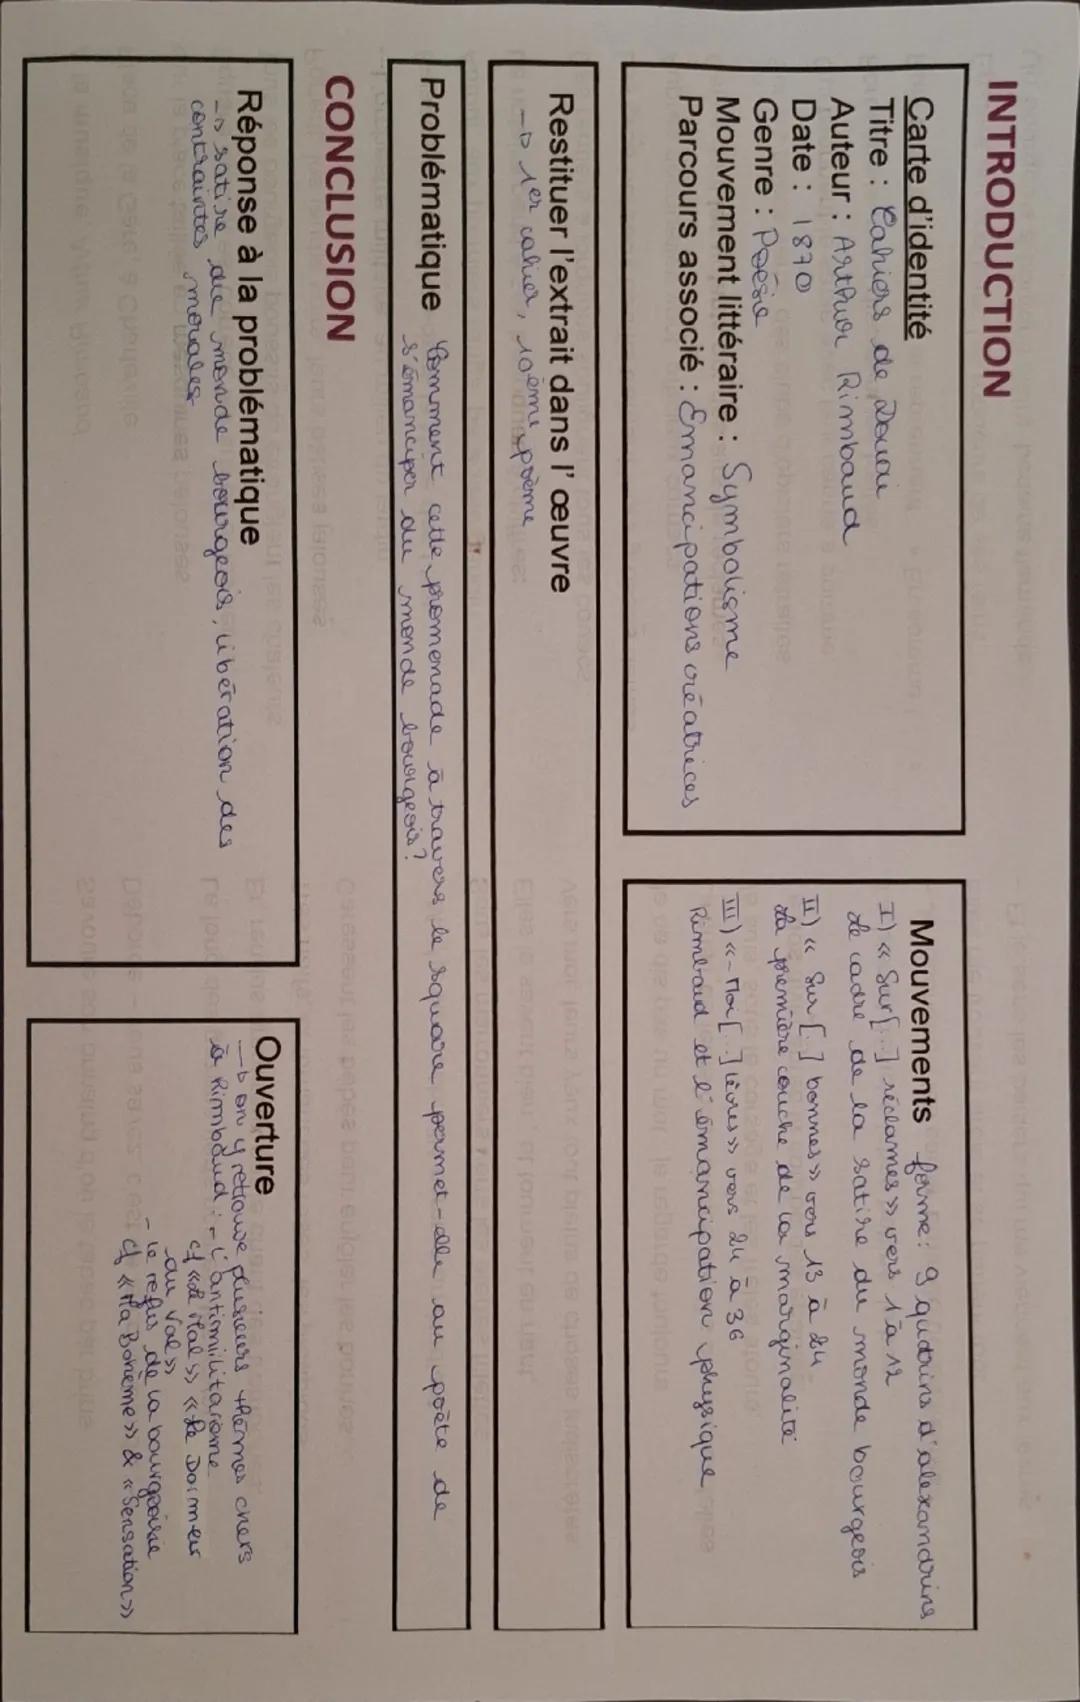 INTRODUCTION
Carte d'identité
Titre : Cahiers de Douai
Auteur : Arthur Rimbaud
Date : 1870
Genre : Poésie
Mouvement littéraire : Symbolisme
Parcours associé : Émancipations créatrices
Mouvements forme : 9 quatrains d'alexandrins
I) « Sur [...] réclames » vers 1 à 12
Le cadre de la satire du monde bourgeois
II) « Sur [...] bonnes » vers 13 à 24
La première couche de la marginalité
III) « - Moi [...] lèvres » vers 24 à 36
Rimbaud et l'émancipation physique
Restituer l'extrait dans l' œuvre
→ 1er cahier, 10ème poème
Problématique Comment cette promenade à travers le square permet-elle au poète de
s'émanciper du monde bourgeois ?
CONCLUSION
Réponse à la problématique
→ satire du monde bourgeois, libération des
contraintes morales
Ouverture
→ on y retrouve plusieurs thèmes chers
à Rimbaud : - L'antimilitarisme
cf « Le Mal » « Le Dormeur
du Val »
- le refus de la bourgeoisie
cf « Ma Bohème » & « Sensation »